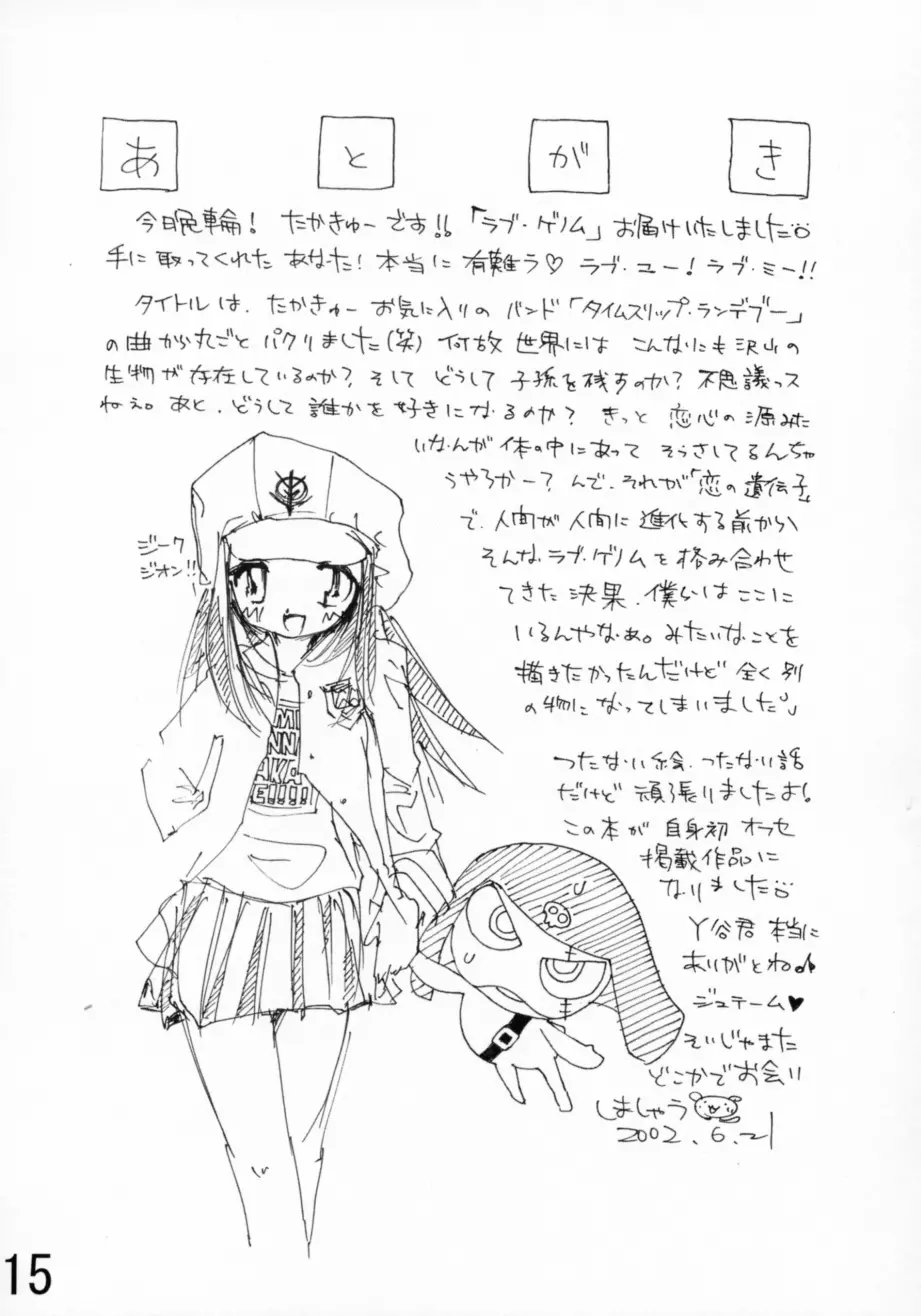 あとがき
今日晩輪! たかきゅーです!!「ラブ・ゲノム」お届けいたしました
手に取ってくれた あなた!本当に 有難ラ♡ ラブ・ユー!ラブ・ミー!!
タイトルは、たかきゅー お気に入りの バンド「タイムスリップ・ランデブー」
の曲から丸ごと パクりました(笑) 何故 世界には こんなにも 沢山の
生物が 存在しているのか? そして どうして 子孫を残すのか? 不思議っス
ねぇ。あと、どうして 誰かを 好きになるのか? きっと 恋心の 源みた
いなんが 体の中にあって そうさしてるんちゃ
うやろかー? んで、それが「恋の遺伝子」
で、人間が 人間に 進化する前から
そんな ラブ・ゲノムを 絡み合わせ
てきた 決果、僕らは ここに
いるんやなぁ。みたいなことを
描きたかったんだけど 全く別
の物になってしまいました。
ジーク
ジオン!!
MI
NN
AKA
E!!!!
つたない絵、つたない話
だけど 頑張りましたよ!
この本が 自身初 オフセ
掲載作品に
なりました
丫谷君 本当に
ありがとね♪
ジュテーム♥
そいじゃまた
どこかでお会い
しましゃう
2002.6.21
15